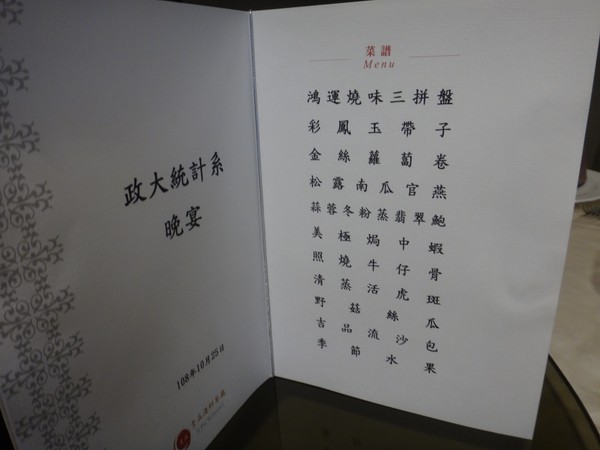 政大統計系
晚宴
108年10月25日
菜譜
Menu
鴻運燒味三拼盤
彩鳳玉帶子
金絲蘿蔔卷
松露南瓜官燕
蒜蓉冬粉蒸翡翠鮑
美極焗中蝦
照燒牛仔骨
清蒸活虎斑
野菇絲瓜
吉品流沙包
季節水果